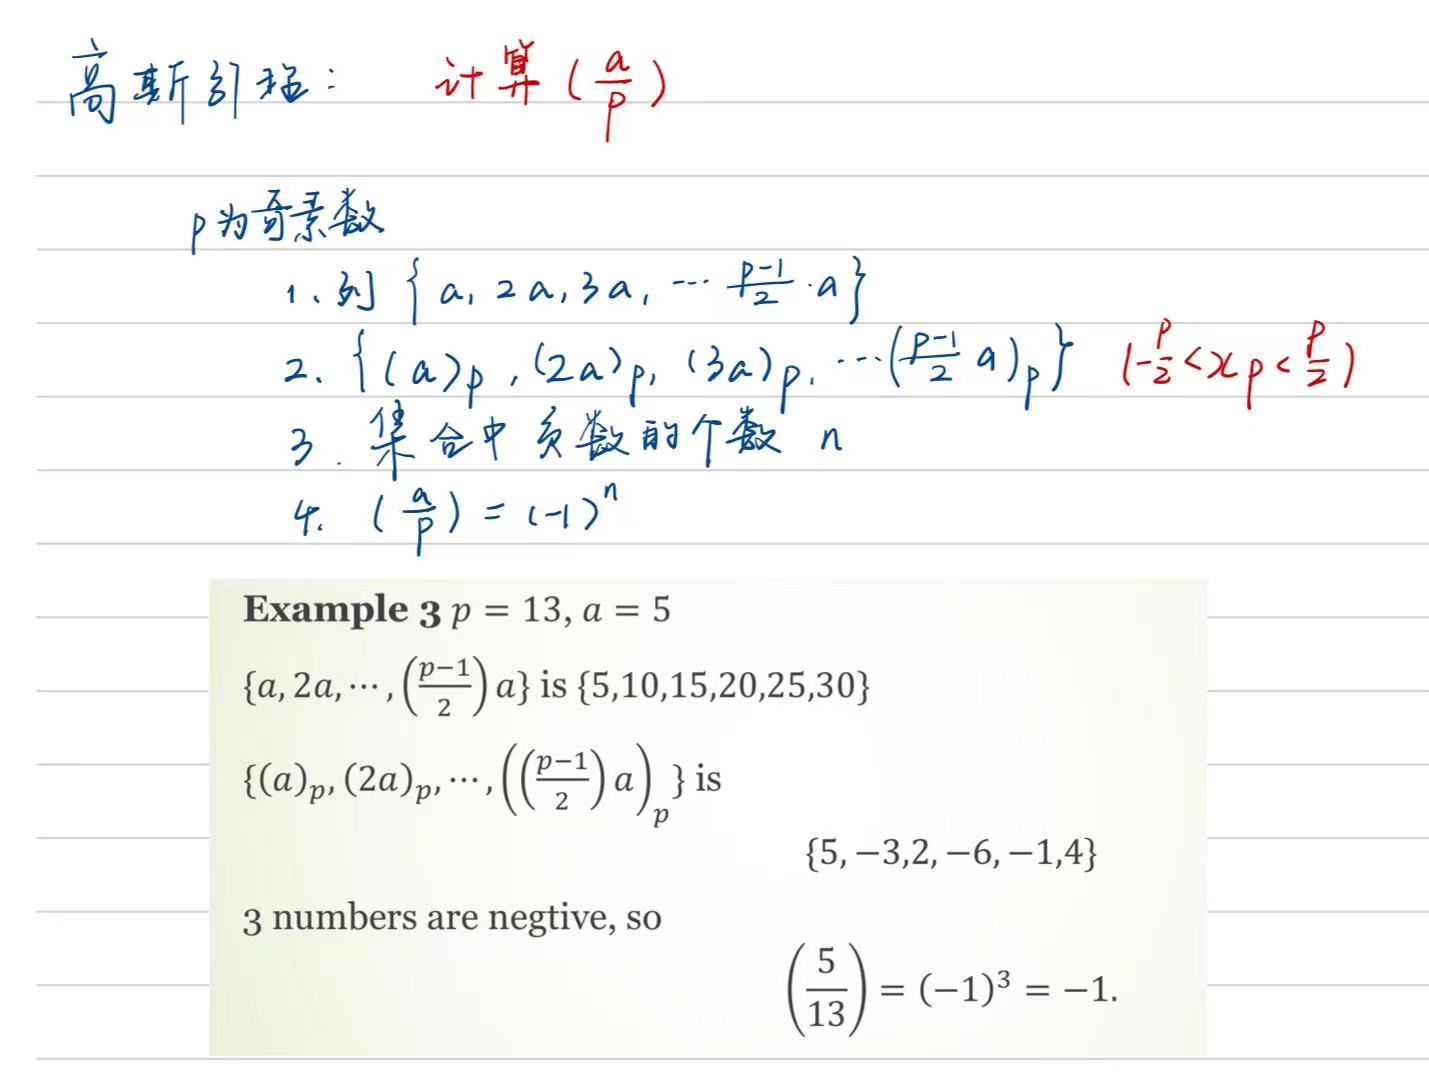 高斯引理： 计算(a/p)
p为奇素数
1、列 {a, 2a, 3a, … p-1/2 · a}
2. {(a)p, (2a)p, (3a)p, …(p-1/2 a)p} (-p/2 < xp < p/2)
3. 集合中负数的个数 n
4. (a/p) = (-1)^n
Example 3 p = 13, a = 5
{a, 2a, ⋯, (p−1/2) a} is {5,10,15,20,25,30}
{(a)p, (2a)p, ⋯, ((p−1/2) a)p } is
{5, −3,2, −6, −1,4}
3 numbers are negtive, so
(5/13) = (−1)³ = −1.